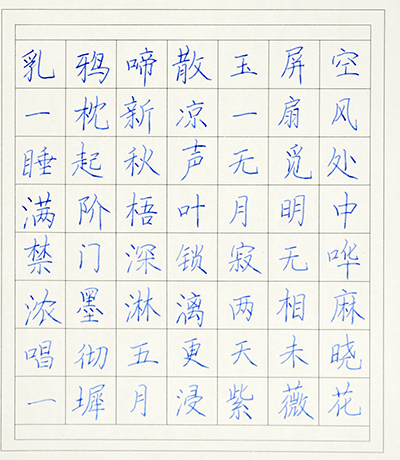 乳鸦啼散玉屏空
一枕新凉一扇风
睡起秋声无觅处
满阶梧叶月明中
禁门深锁寂无哗
浓墨淋漓两相麻
唱彻五更天未晓
一墀月浸紫薇花